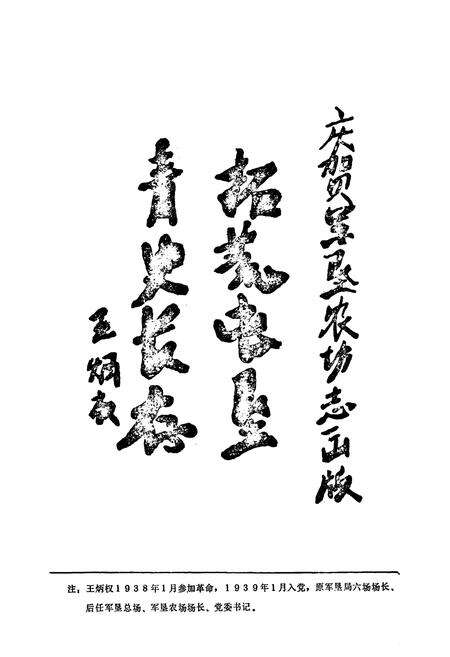 庆贺军垦农场志出版
拓荒屯垦
青史长存
王炳权
注：王炳权1938年1月参加革命，1939年1月入党，原军垦局六场场长、
后任军垦总场、军垦农场场长、党委书记。